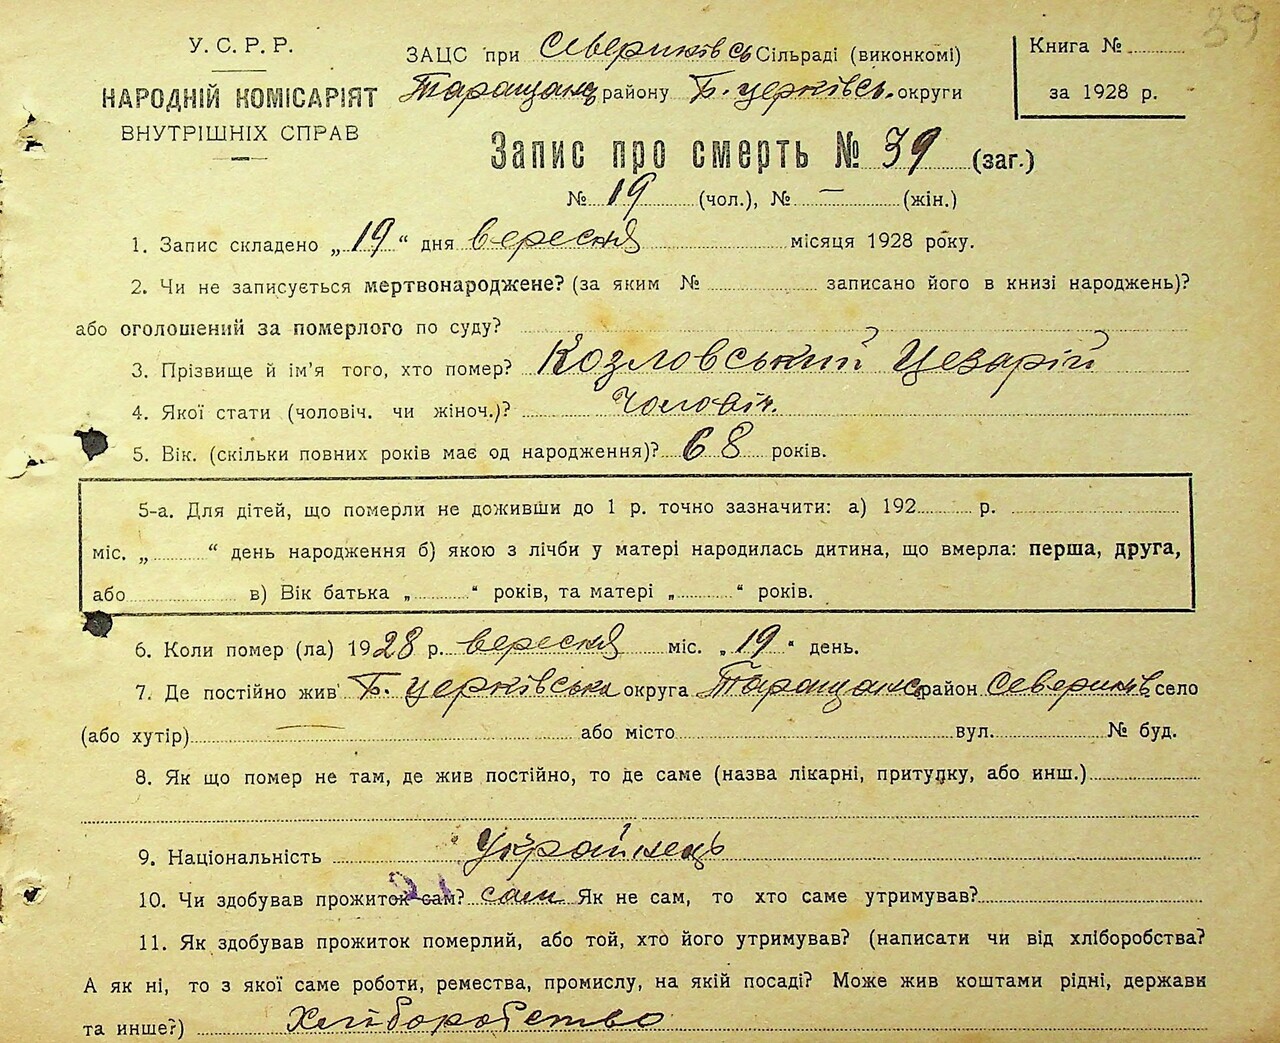 39
У. С. Р. Р.
НАРОДНІЙ КОМІСАРІЯТ
ВНУТРІШНІХ СПРАВ
ЗАЦС при Севериківсь Сільраді (виконкомі)
Таращанс району Б. церківсь. округи
Книга №
за 1928 р.
Запис про смерть № 39 (заг.)
№ 19 (чол.), № — (жін.)
1. Запис складено „19“ дня вересня місяця 1928 року.
2. Чи не записується мертвонароджене? (за яким № записано його в книзі народжень)?
або оголошений за померлого по суду?
3. Прізвище й ім'я того, хто помер? Козловський Цезарій
4. Якої стати (чоловіч. чи жіноч.)? Чоловіч.
5. Вік. (скільки повних років має од народження)? 68 років.
5-а. Для дітей, що померли не доживши до 1 р. точно зазначити: а) 192 р.
міс. „ “ день народження б) якою з лічби у матері народилась дитина, що вмерла: перша, друга,
або в) Вік батька „ “ років, та матері „ “ років.
6. Коли помер (ла) 1928 р. вересня міс. „19“ день.
7. Де постійно жив Б. церківська округа Таращанс район Севериків село
(або хутір) — або місто вул. № буд.
8. Як що помер не там, де жив постійно, то де саме (назва лікарні, притулку, або инш.)
9. Національність Українець
10. Чи здобував прожиток сам? сам Як не сам, то хто саме утримував?
11. Як здобував прожиток померлий, або той, хто його утримував? (написати чи від хліборобства?
А як ні, то з якої саме роботи, ремества, промислу, на якій посаді? Може жив коштами рідні, держави
та инше?) Хліборобство